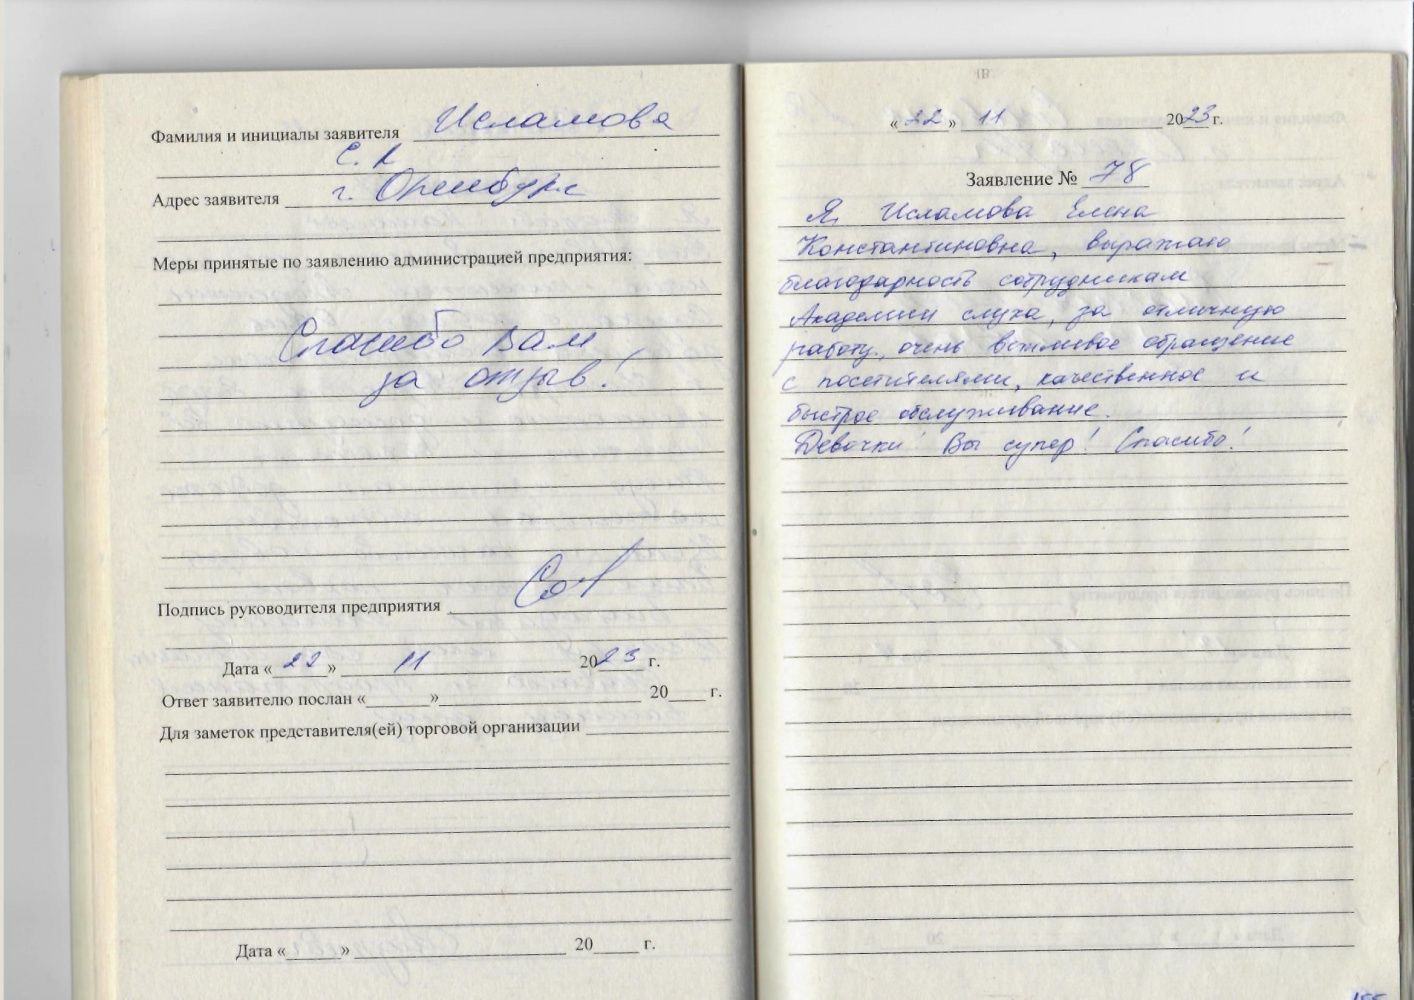 Фамилия и инициалы заявителя Исламова
Е. К
Адрес заявителя г. Оренбург
Меры принятые по заявлению администрацией предприятия:
Спасибо Вам
за отзыв!
Подпись руководителя предприятия
Дата « 22 » 11 2023 г.
Ответ заявителю послан « » 20 г.
Для заметок представителя(ей) торговой организации
Дата « » 20 г.
« 22 » 11 2023 г.
Заявление № 78
Я, Исламова Елена
Константиновна, выражаю
благодарность сотрудникам
Академии слуха, за отличную
работу, очень вежливое обращение
с посетителями, качественное и
быстрое обслуживание.
Девочки! Вы супер! Спасибо!